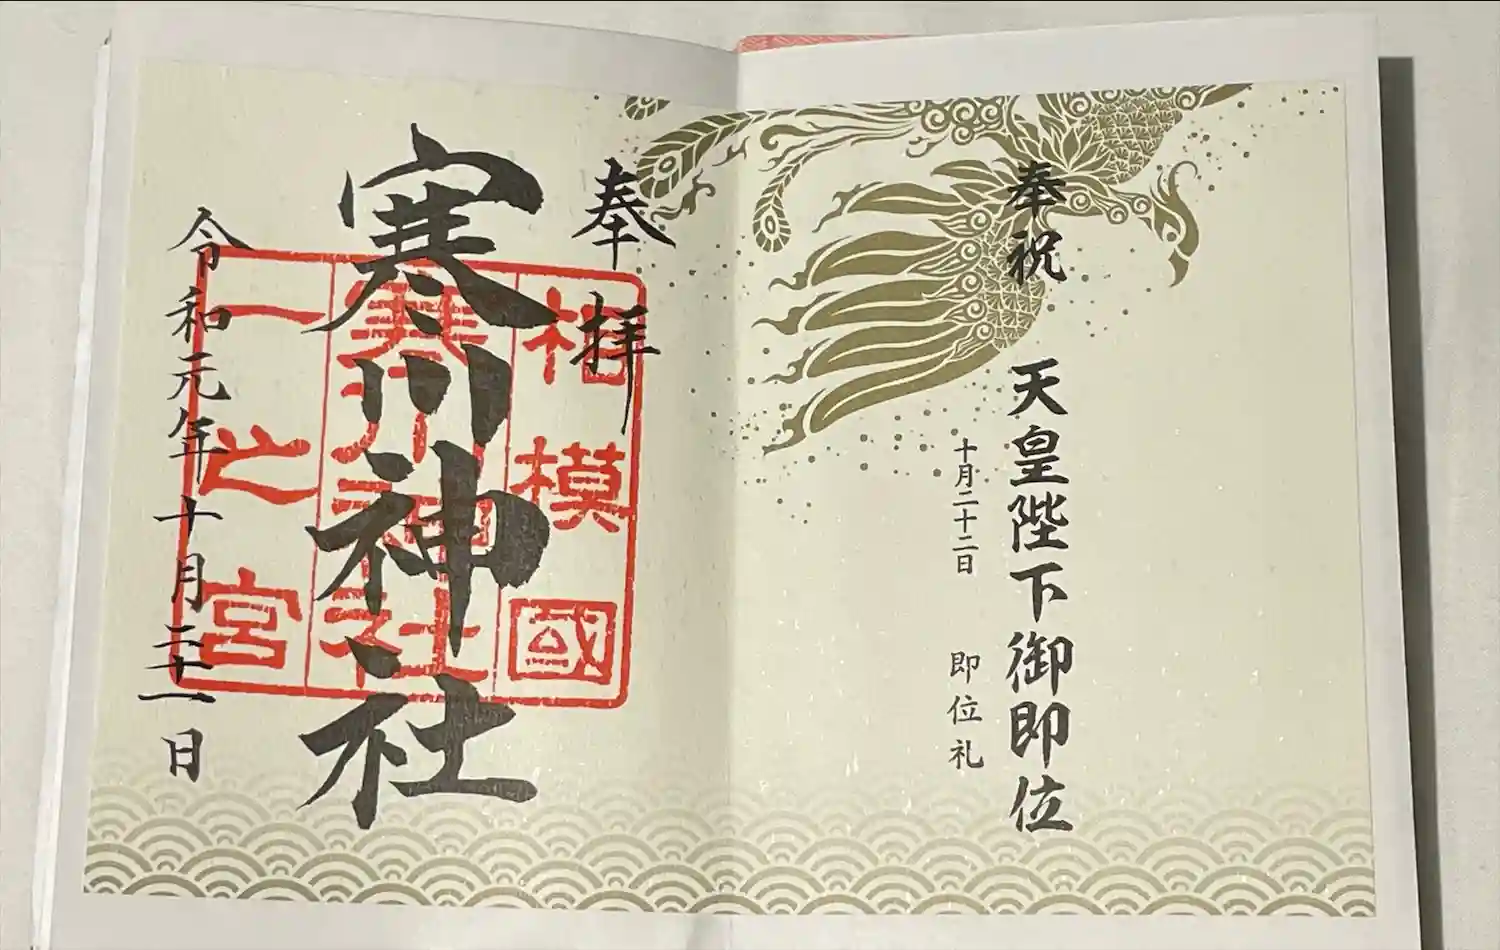 奉祝 天皇陛下御即位
十月二十二日 即位礼
奉拝
寒川神社
相模國
寒川神社
一之宮
令和元年十月三十一日